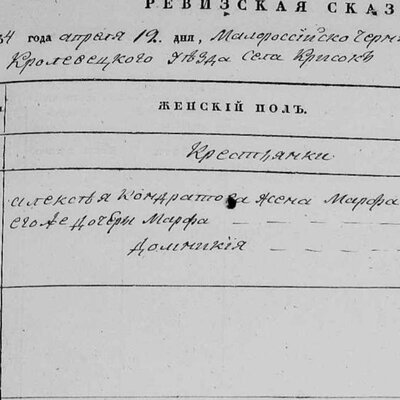 РЕВИЗСКАЯ СКАЗ
34 года апреля 12 дня, Малороссійско Черни
Кролевецкого Уѣзда Села
ЖЕНСКІЙ ПОЛ.
Крестьянки
Алексѣя Кондратова жена Марфа
его же дочери Марфа
Домникія